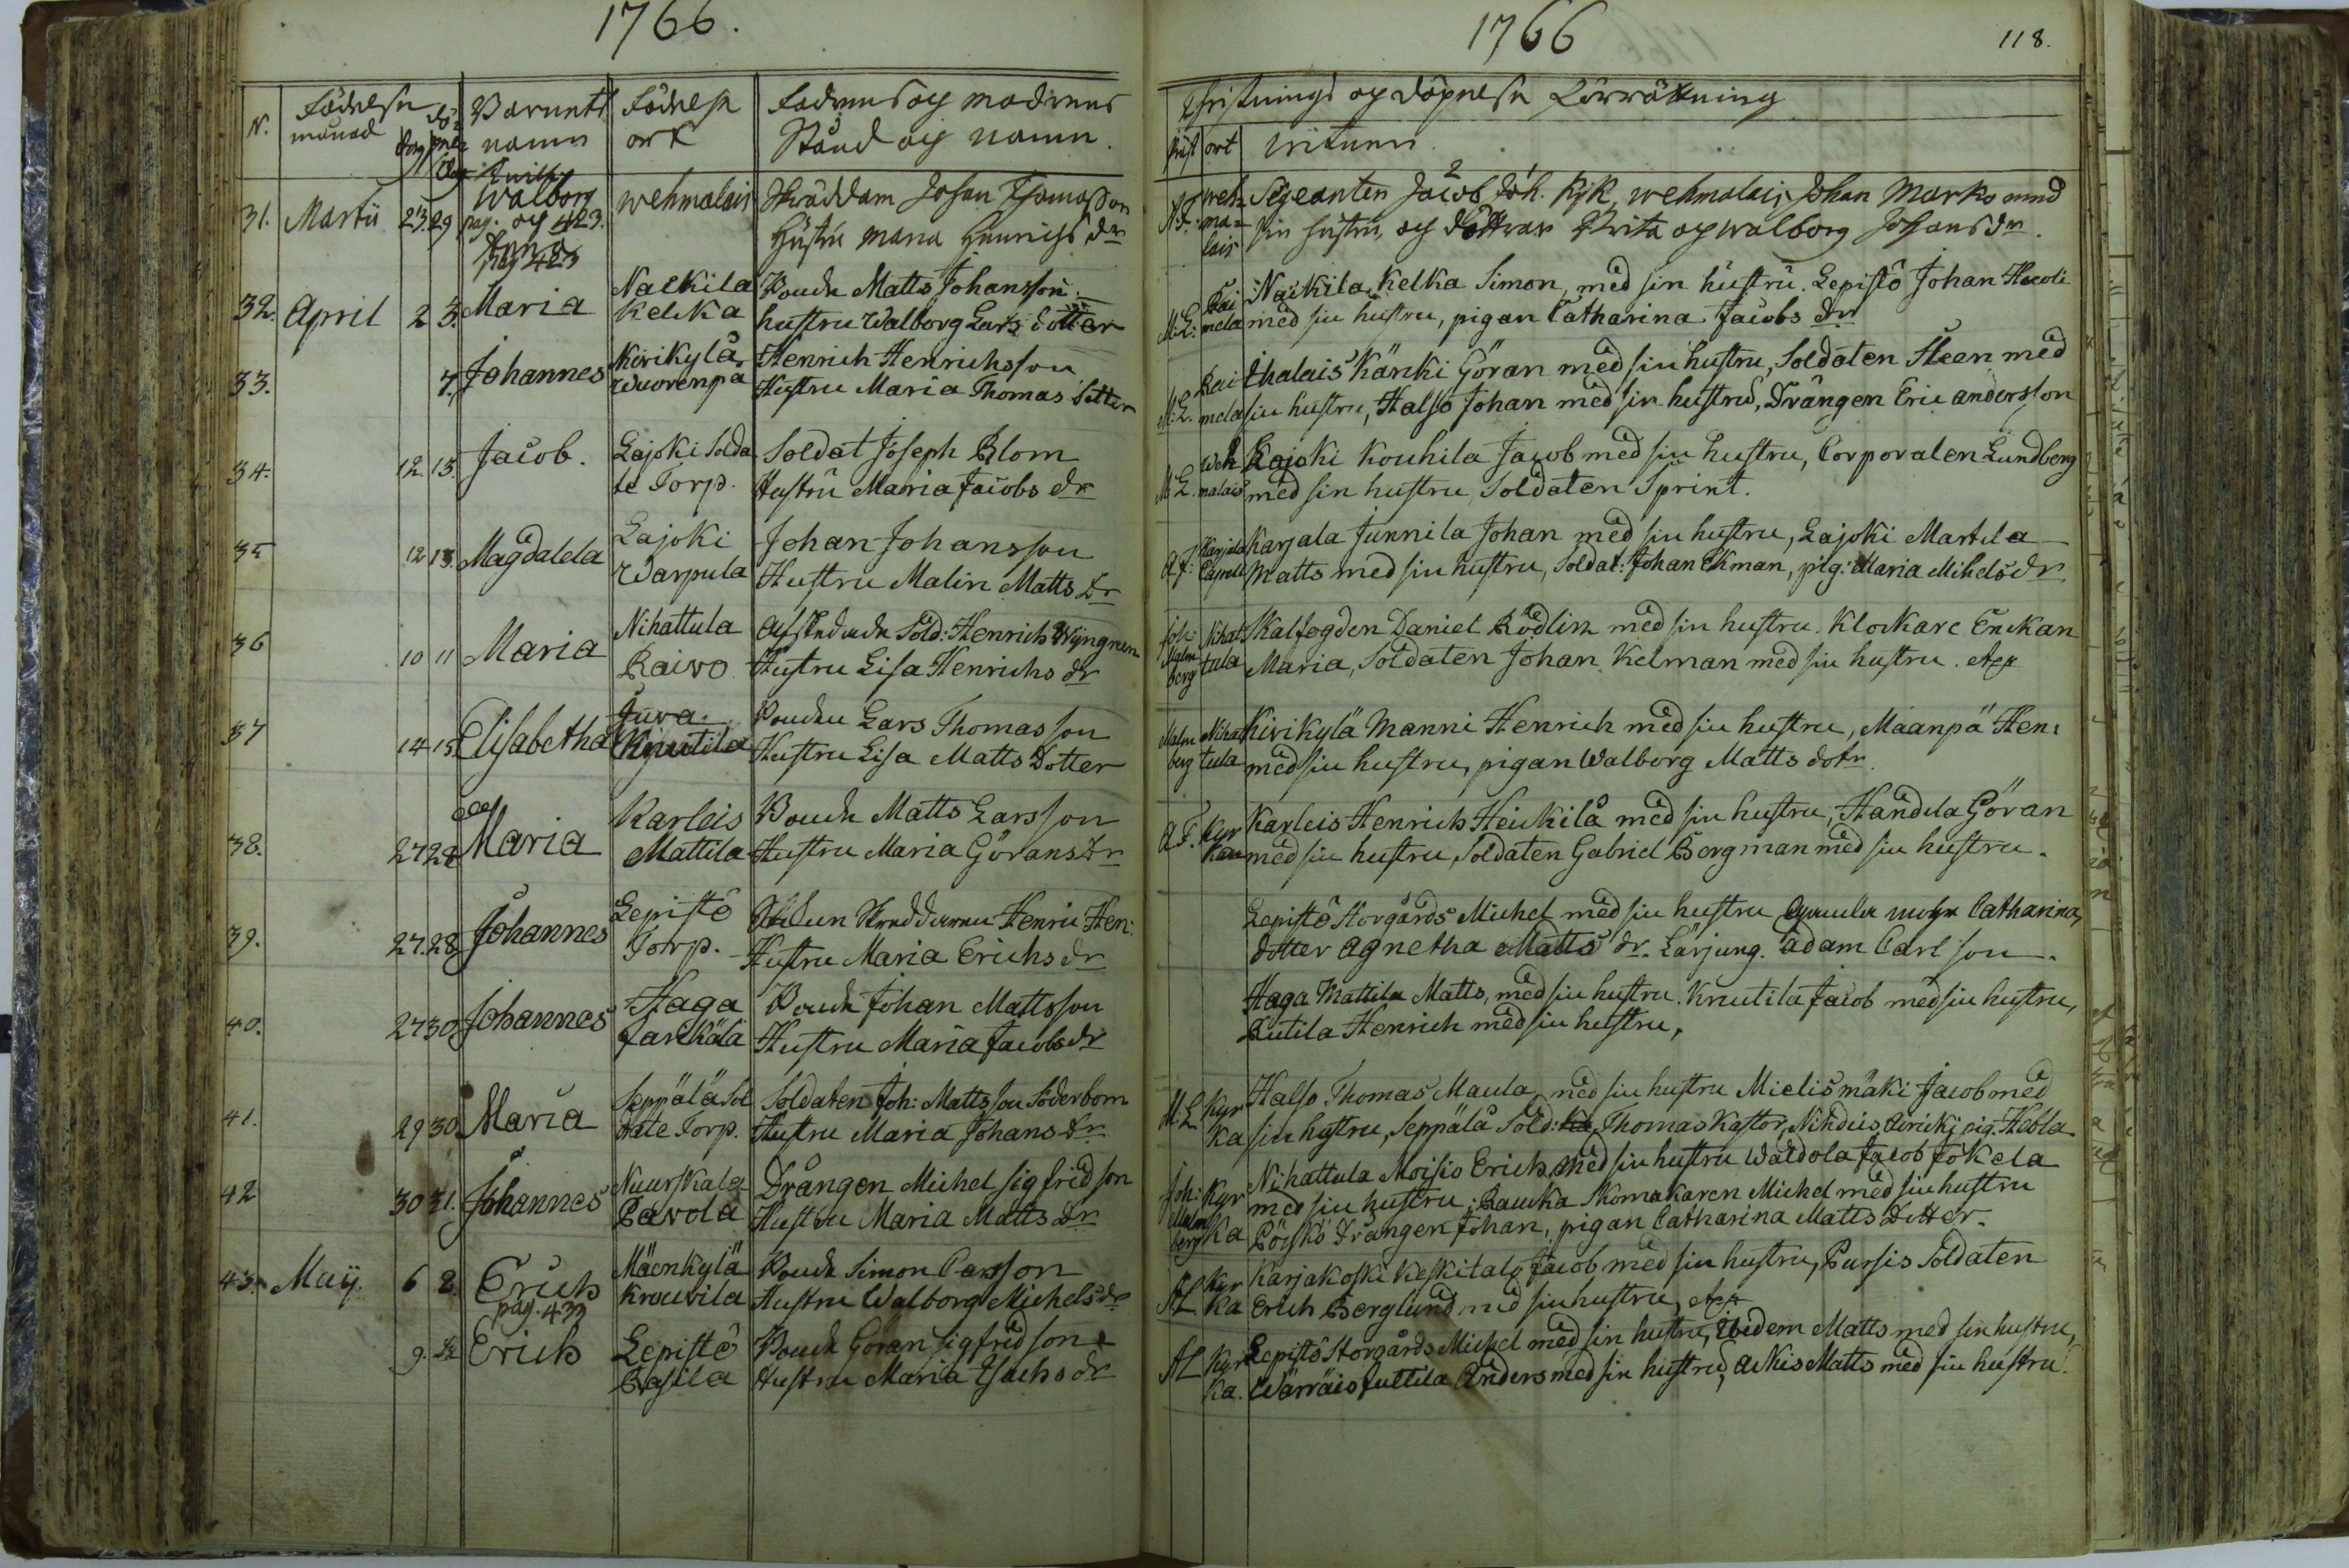 1766.
N.
Födelse
månad
dag
Barnets
namn
Födelse
ort
Fadrens och modrens
Stånd och namn.
31. Martii 23. 29
Walborg
pag. og 423.
Anna
pag 423
wehmalais
Skräddarn Johan Thomasson
Hustru Maria Henrichs dr
32. April 2 3. Maria
Nackila
Kelcka
Bonde Matts Johansson
hustru Walborg Lars dotter
33. 7. Johannes
Kirikylä
Wuorenpä
Henrich Henrichsson
Hustru Maria Thomas dotter
34. 12. 13. Jacob.
Lajoki Solda
te Torp.
Soldat Joseph Blom
Hustru Maria Jacobs dr
35 12 13. Magdalela
Lajoki
Warpula
Johan Johansson
Hustru Malin Matts Dr
36 10 11 Maria
Nihattula
Raivo
Sold: Henrich
Hustru Lisa Henrichs dr
37 14 15. Elisabetha
Juva.
Knutila
Bonden Lars Thomasson
Hustru Lisa Matts Dotter
38. 27 28 Maria
Karleis
Mattila
Bonde Matts Larsson
Hustru Maria Görans Dr
39. 27. 28. Johannes
Lepistö
Torp.
Henric Hen:
Hustru Maria Erichs dr
40. 27 30 Johannes
Haga
Jarckälä
Bonde Johan Mattsson
Hustru Maria Jacobs dr
41. 29 30. Maria
Seppälä Sol
date Torp.
Soldaten Joh: Mattsson Söderbom
Hustru Maria Johans Dr
42 30 31. Johannes
Nuurskala
Pavola
Drängen Michel Sigfridson
Hustru Maria Matts Dr
43. Maÿ. 6 8. Erich
pag. 433
Mäenkylä
Krouvila
Bonde Simon Carsson
Hustru Walborg Michels dr
9. Erich
Lepistö
Pasila
Bonde Göran Sigfridson
Hustru Maria Isachs dr
1766
118.
Christnings og döpnelse Förrättning
Präst ort witnen
A.F. weh= Sergeanten Jacob Joh. Kjk, wehmalais Johan Marks med
ma=
lais sin hustru, og döttrar Brita og walborg Johans dr.
M: L: Rai Nackila Kelka Simon, med sin hustru. Lepistö Johan
mela med sin hustru, pigan Catharina Jacobs dr
M: L. Rai Ihalais Känki Göran med sin hustru, Soldaten Steen med
mela sin hustru, Halso Johan med sin hustru, Drängen Eric andersson
M. L. Weh Lajoki Kouhila Jacob med sin hustru, Corporalen Lundberg
malais med sin hustru, Soldaten Sprint.
A. F: Karjala Karjala Junnila Johan med sin hustru, Lajoki Martila
Capell Matts med sin hustru, Soldat: Johan Ekman, pig: Maria Mihels dr
Joh: Nihat Skalfogden Daniel Rödlin med sin hustru. Klockare Enckan
Malm
berg tula Maria, Soldaten Johan Kelman med sin hustru.
Malm Nihat Kirikylä Manni Henrich med sin hustru, Maanpä Hen:
berg tula med sin hustru, pigan Walborg Matts dotr.
A. F. Kyr Karleis Henrich Heickilä med sin hustru, Handela Göran
kan med sin hustru, Soldaten Gabriel Bergman med sin hustru.
Lepistö Storgårds Michel med sin hustru Catharina,
dotter Agnetha Matts dr. Lärjung. Adam Carlson.
Haga Mattila Matts, med sin hustru. Knutila Jacob med sin hustru,
Rutila Henrich med sin hustru,
M: L Kyr Halso Thomas Maula med sin hustru Mielismäki Jacob med
ka sin hustru, Seppälä Sold: Thomas Kastor, pig. Hebla
Joh: Kyr Nihattula Moisio Erich med sin hustru Waldola Jacob Jokela
Malm med sin hustru; Raucka Skomakaren Michel med sin hustru
berg ka Pöiskö Drängen Johan, pigan Catharina Matts Dotter.
AL Kyr Karjakoski Keskitalo Jacob med sin hustru, Pursis Soldaten
ka Erich Berglund med sin hustru,
AL Kyr Lepistö Storgårds Michel med sin hustru, Ibidem Matts med sin hustru,
ka. Wärräis Juttila Anders med sin hustru, Matts med sin hustru